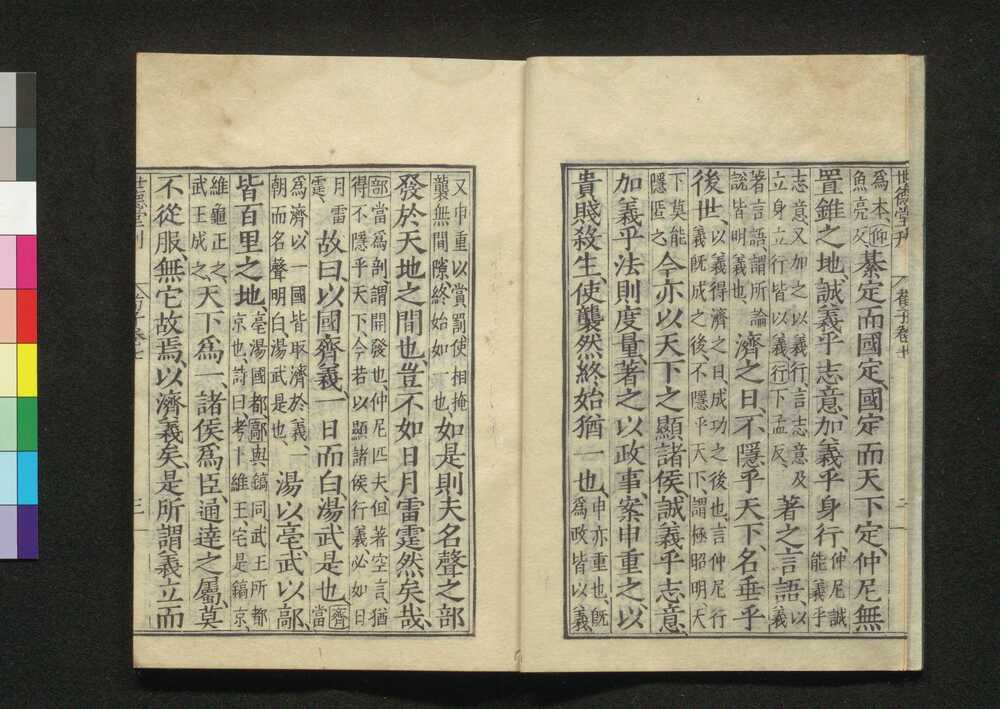 世德堂刊 荀子卷七 二
為本、仰魚亮反綦定而國定、國定而天下定、仲尼無
置錐之地、誠義乎志意、加義乎身行仲尼誠能義乎
志意、又加之以義行、言志意及立身立行皆以義、行下孟反、著之言語、以義
著言語、謂所論說皆明義也、濟之日、不隱乎天下、名垂乎
後世、以義得濟之日、成功之後也、言仲尼行義既成之後、不隱乎天下、謂極昭明天
下莫能隱匿之今亦以天下之顯諸侯、誠義乎志意、
加義乎法則度量、著之以政事、案申重之、以
貴賤殺生、使襲然終始猶一也、申亦重也、既為政皆以義、
又申重以賞罰、使相掩襲無間隙、終始如一也、如是則夫名聲之部
發於天地之間也、豈不如日月雷霆然矣哉、
部當為剖、謂開發也、仲尼匹夫、但著空言、猶得不隱乎天下、今若以顯諸侯行義、必如日
月雷霆、故曰、以國齊義、一日而白、湯武是也、齊當
為濟、以一國皆取濟於義、一朝而名聲明白、湯武是也、湯以亳、武以鄗、
皆百里之地亳、湯國都、鄗與鎬同、武王所都京也、詩曰、考卜維王、宅是鎬京、
維龜正之、武王成之、天下為一、諸侯為臣、通達之屬、莫
不從服、無它故焉、以濟義矣、是所謂義立而
世德堂刊 荀子卷七 三